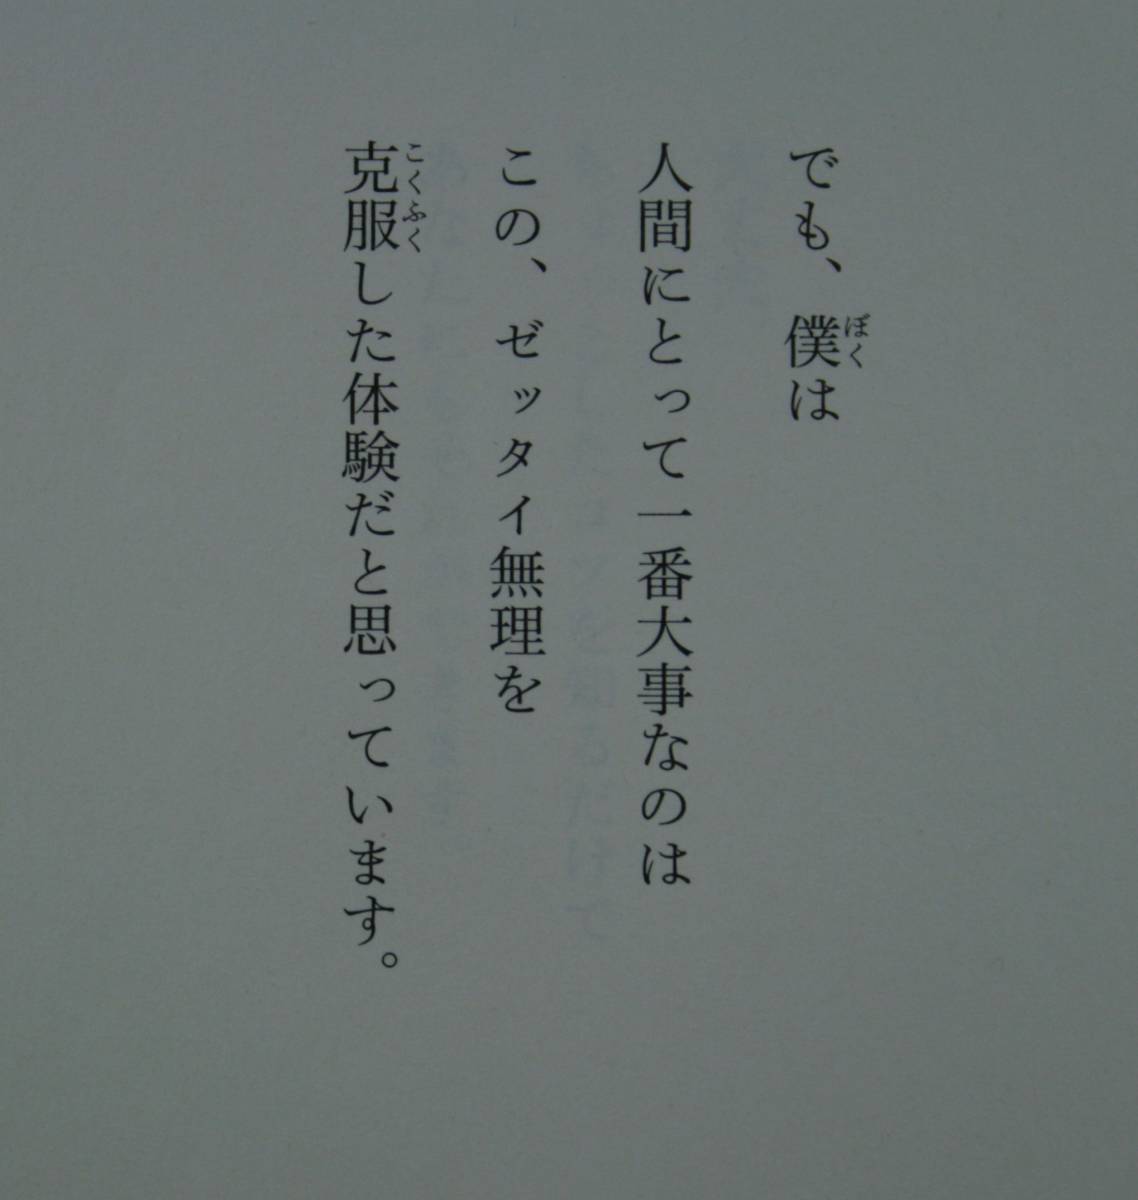 でも、僕は
人間にとって一番大事なのは
この、ゼッタイ無理を
克服した体験だと思っています。